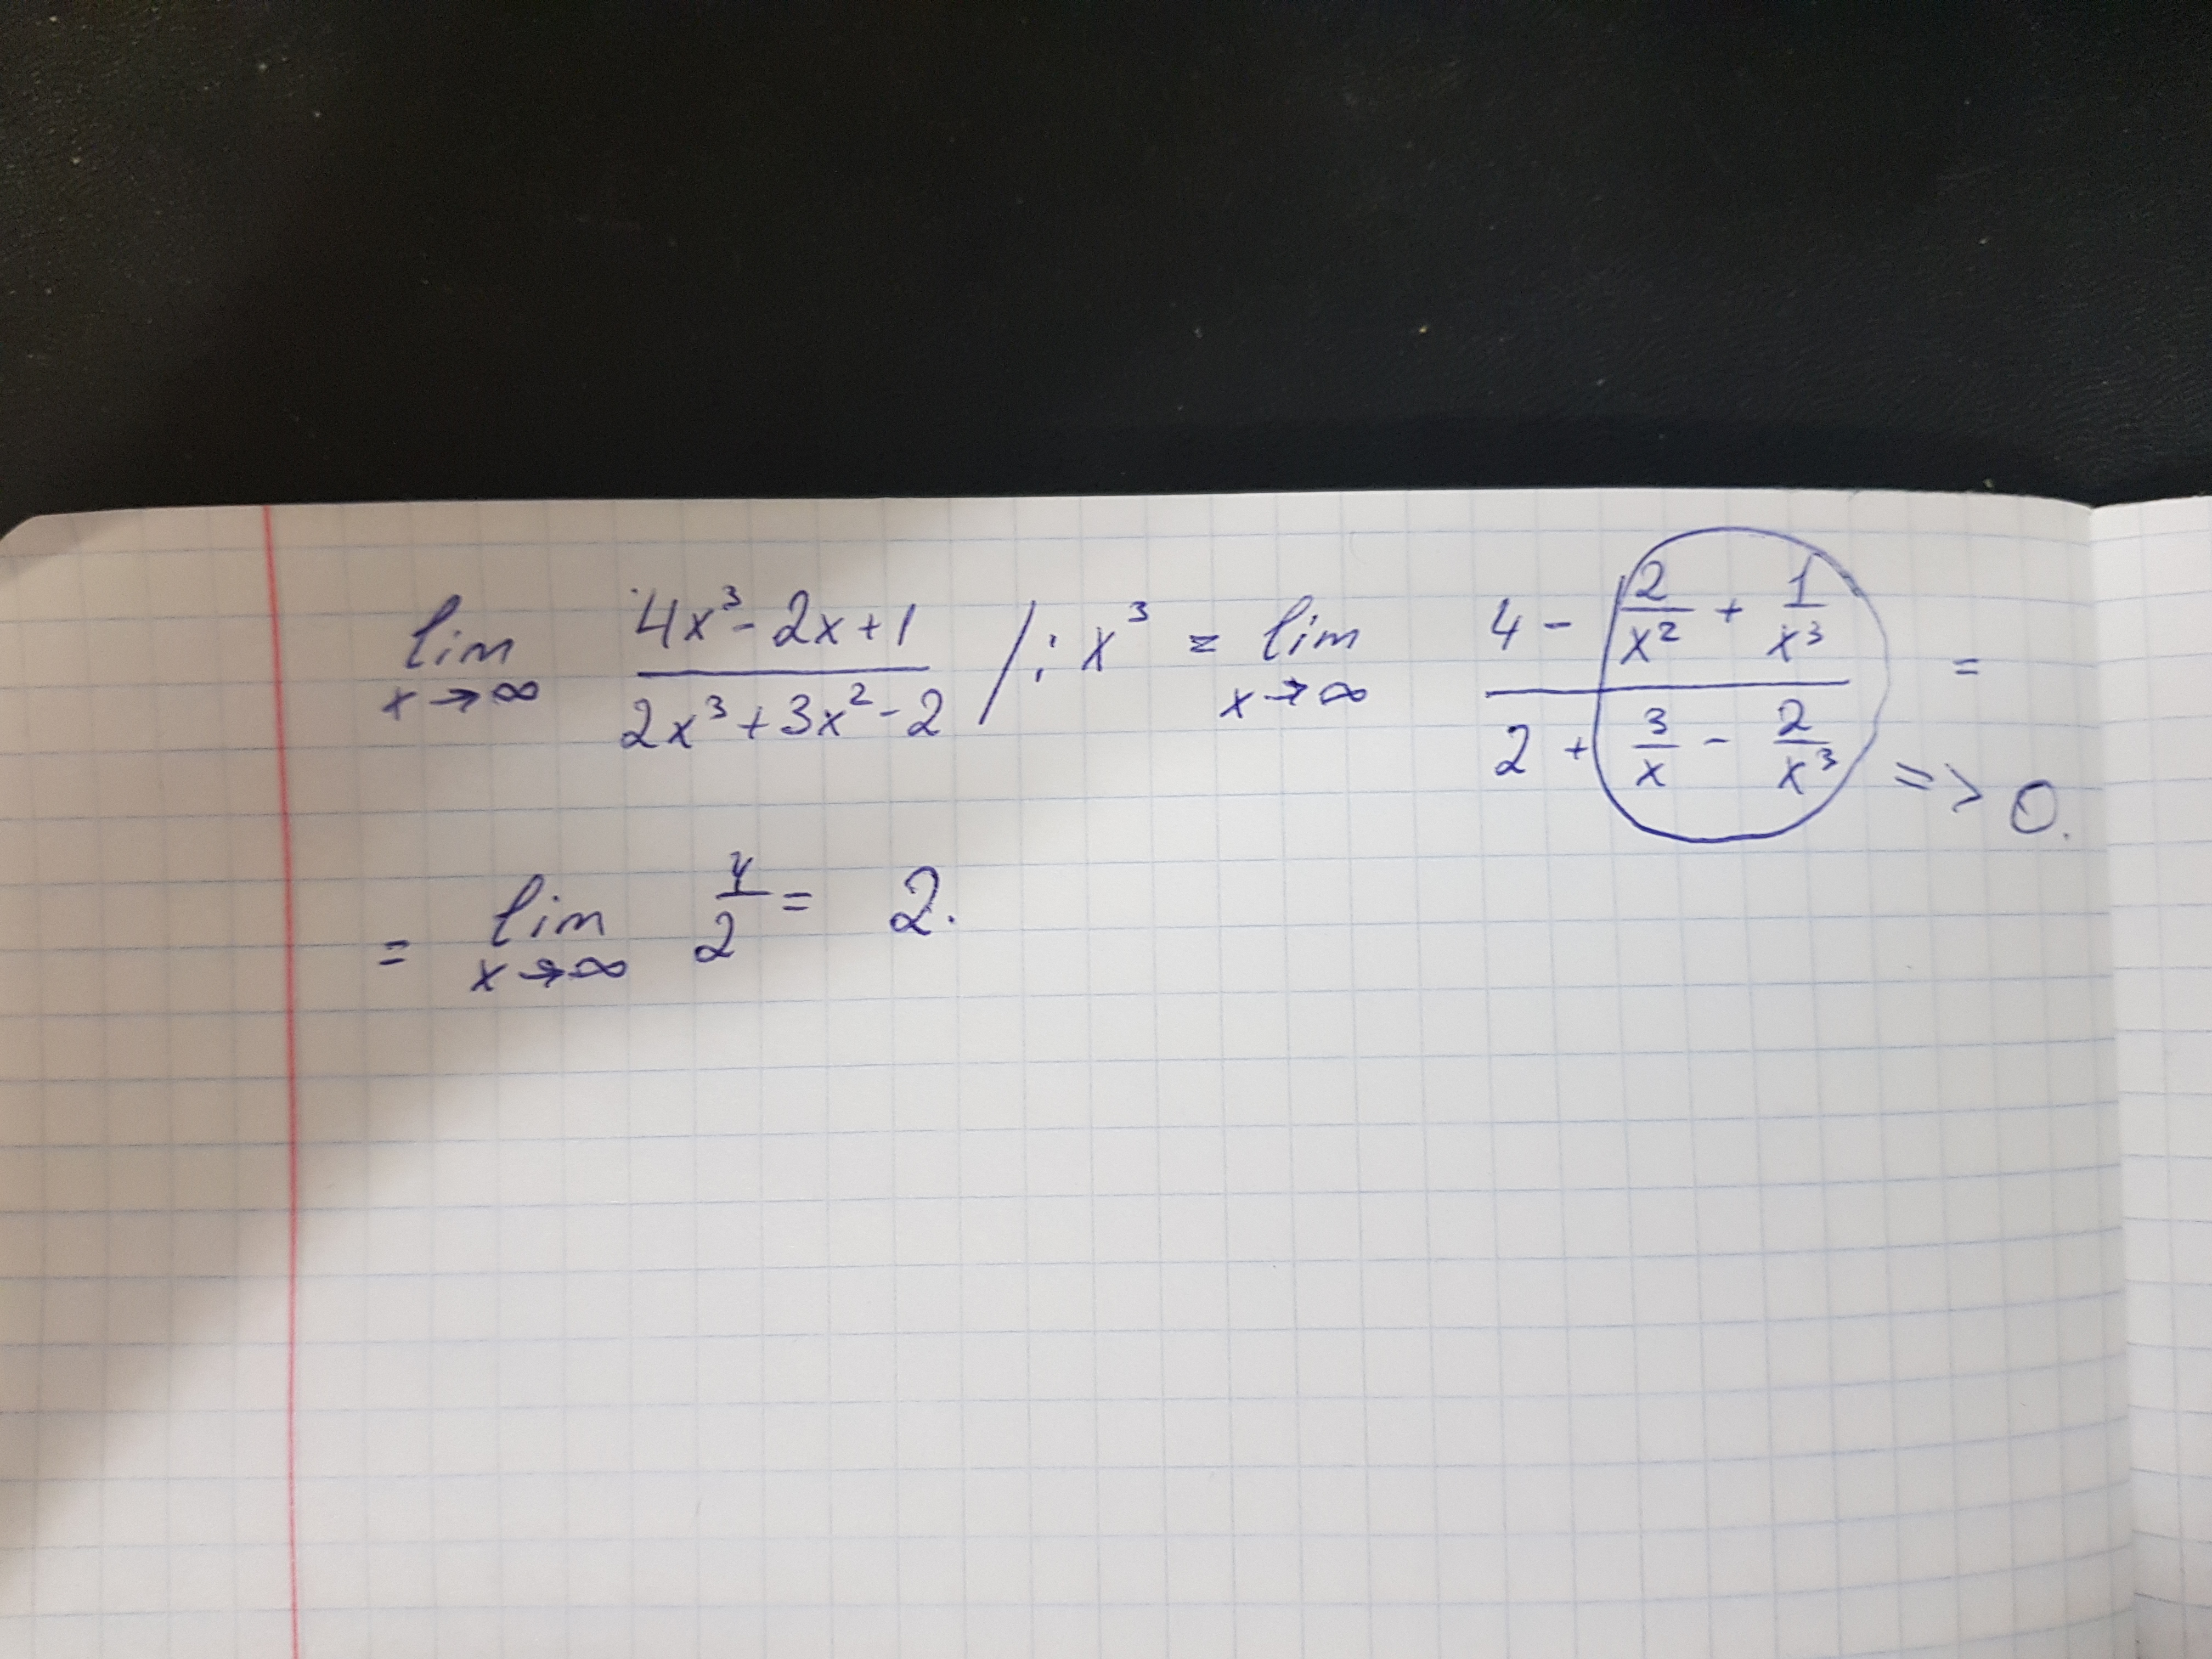 lim x→∞ (4x³ - 2x + 1)/(2x³ + 3x² - 2) / : x³ = lim x→∞ (4 - 2/x² + 1/x³)/(2 + 3/x - 2/x³) =
=> 0.
= lim x→∞ 4/2 = 2.